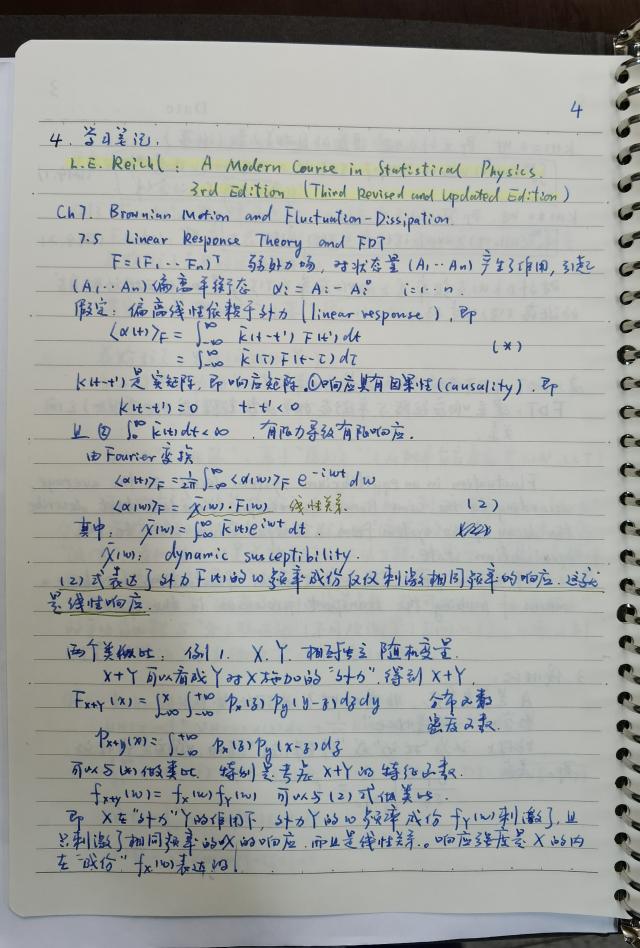 4
4. 学习笔记.
L.E. Reichl: A Modern Course in Statistical Physics.
3rd Edition (Third Revised and Updated Edition)
Ch7. Brownian Motion and Fluctuation-Dissipation.
7.5 Linear Response Theory and FDT
F=(F₁, ⋯ Fₙ)ᵀ 弱外力场, 对状态量(A₁⋯An)产生了作用, 引起
(A₁⋯An)偏离平衡态 αᵢ= Aᵢ - Aᵢ⁰ i=1⋯n.
假定: 偏离线性依赖于外力 (linear response), 即
⟨α(t)⟩_F = ∫_{-∞}^{∞} k̄(t-t') F(t')dt (*)
= ∫_{-∞}^{∞} k̄(τ) F(t-τ)dτ
k(t-t')是实矩阵, 即响应矩阵. ①响应具有因果性(causality), 即
k(t-t')=0 t-t'<0
且 ② ∫₀^∞ k̄(t)dt<∞ . 有限力导致有限响应.
由Fourier变换
⟨α(t)⟩_F = 1/2π ∫_{-∞}^{∞} ⟨α(w)⟩_F e^{-iwt} dw
⟨α(w)⟩_F = χ̄(w)·F(w) 线性关系. (2)
其中: χ̄(w) = ∫_{-∞}^{∞} k̄(t)e^{iwt}dt.
χ̄(w): dynamic susceptibility.
(2)式表达了外力F(t)的w频率成份仅仅刺激相同频率的响应. 这就
是线性响应.
两个类似比: 例1. X, Y. 相互独立 随机变量.
X+Y 可以看成Y对X施加的"外力", 得到X+Y.
F_{X+Y}(x) = ∫_{-∞}^{x} ∫_{-∞}^{+∞} p_X(z) p_Y(y-z)dzdy 分布函数
密度函数.
p_{X+Y}(x) = ∫_{-∞}^{+∞} p_X(z) p_Y(x-z)dz
可以与(*)做类比. 特别是考虑X+Y的特征函数.
f_{X+Y}(w) = f_X(w) f_Y(w) 可以与(2)式做类比.
即 X在"外力"Y的作用下, 外力Y的w频率成份f_Y(w)刺激了, 且
只刺激了相同频率的X的响应. 而且是线性关系. 响应强度是X的内
在"成份"f_X(w)表达的